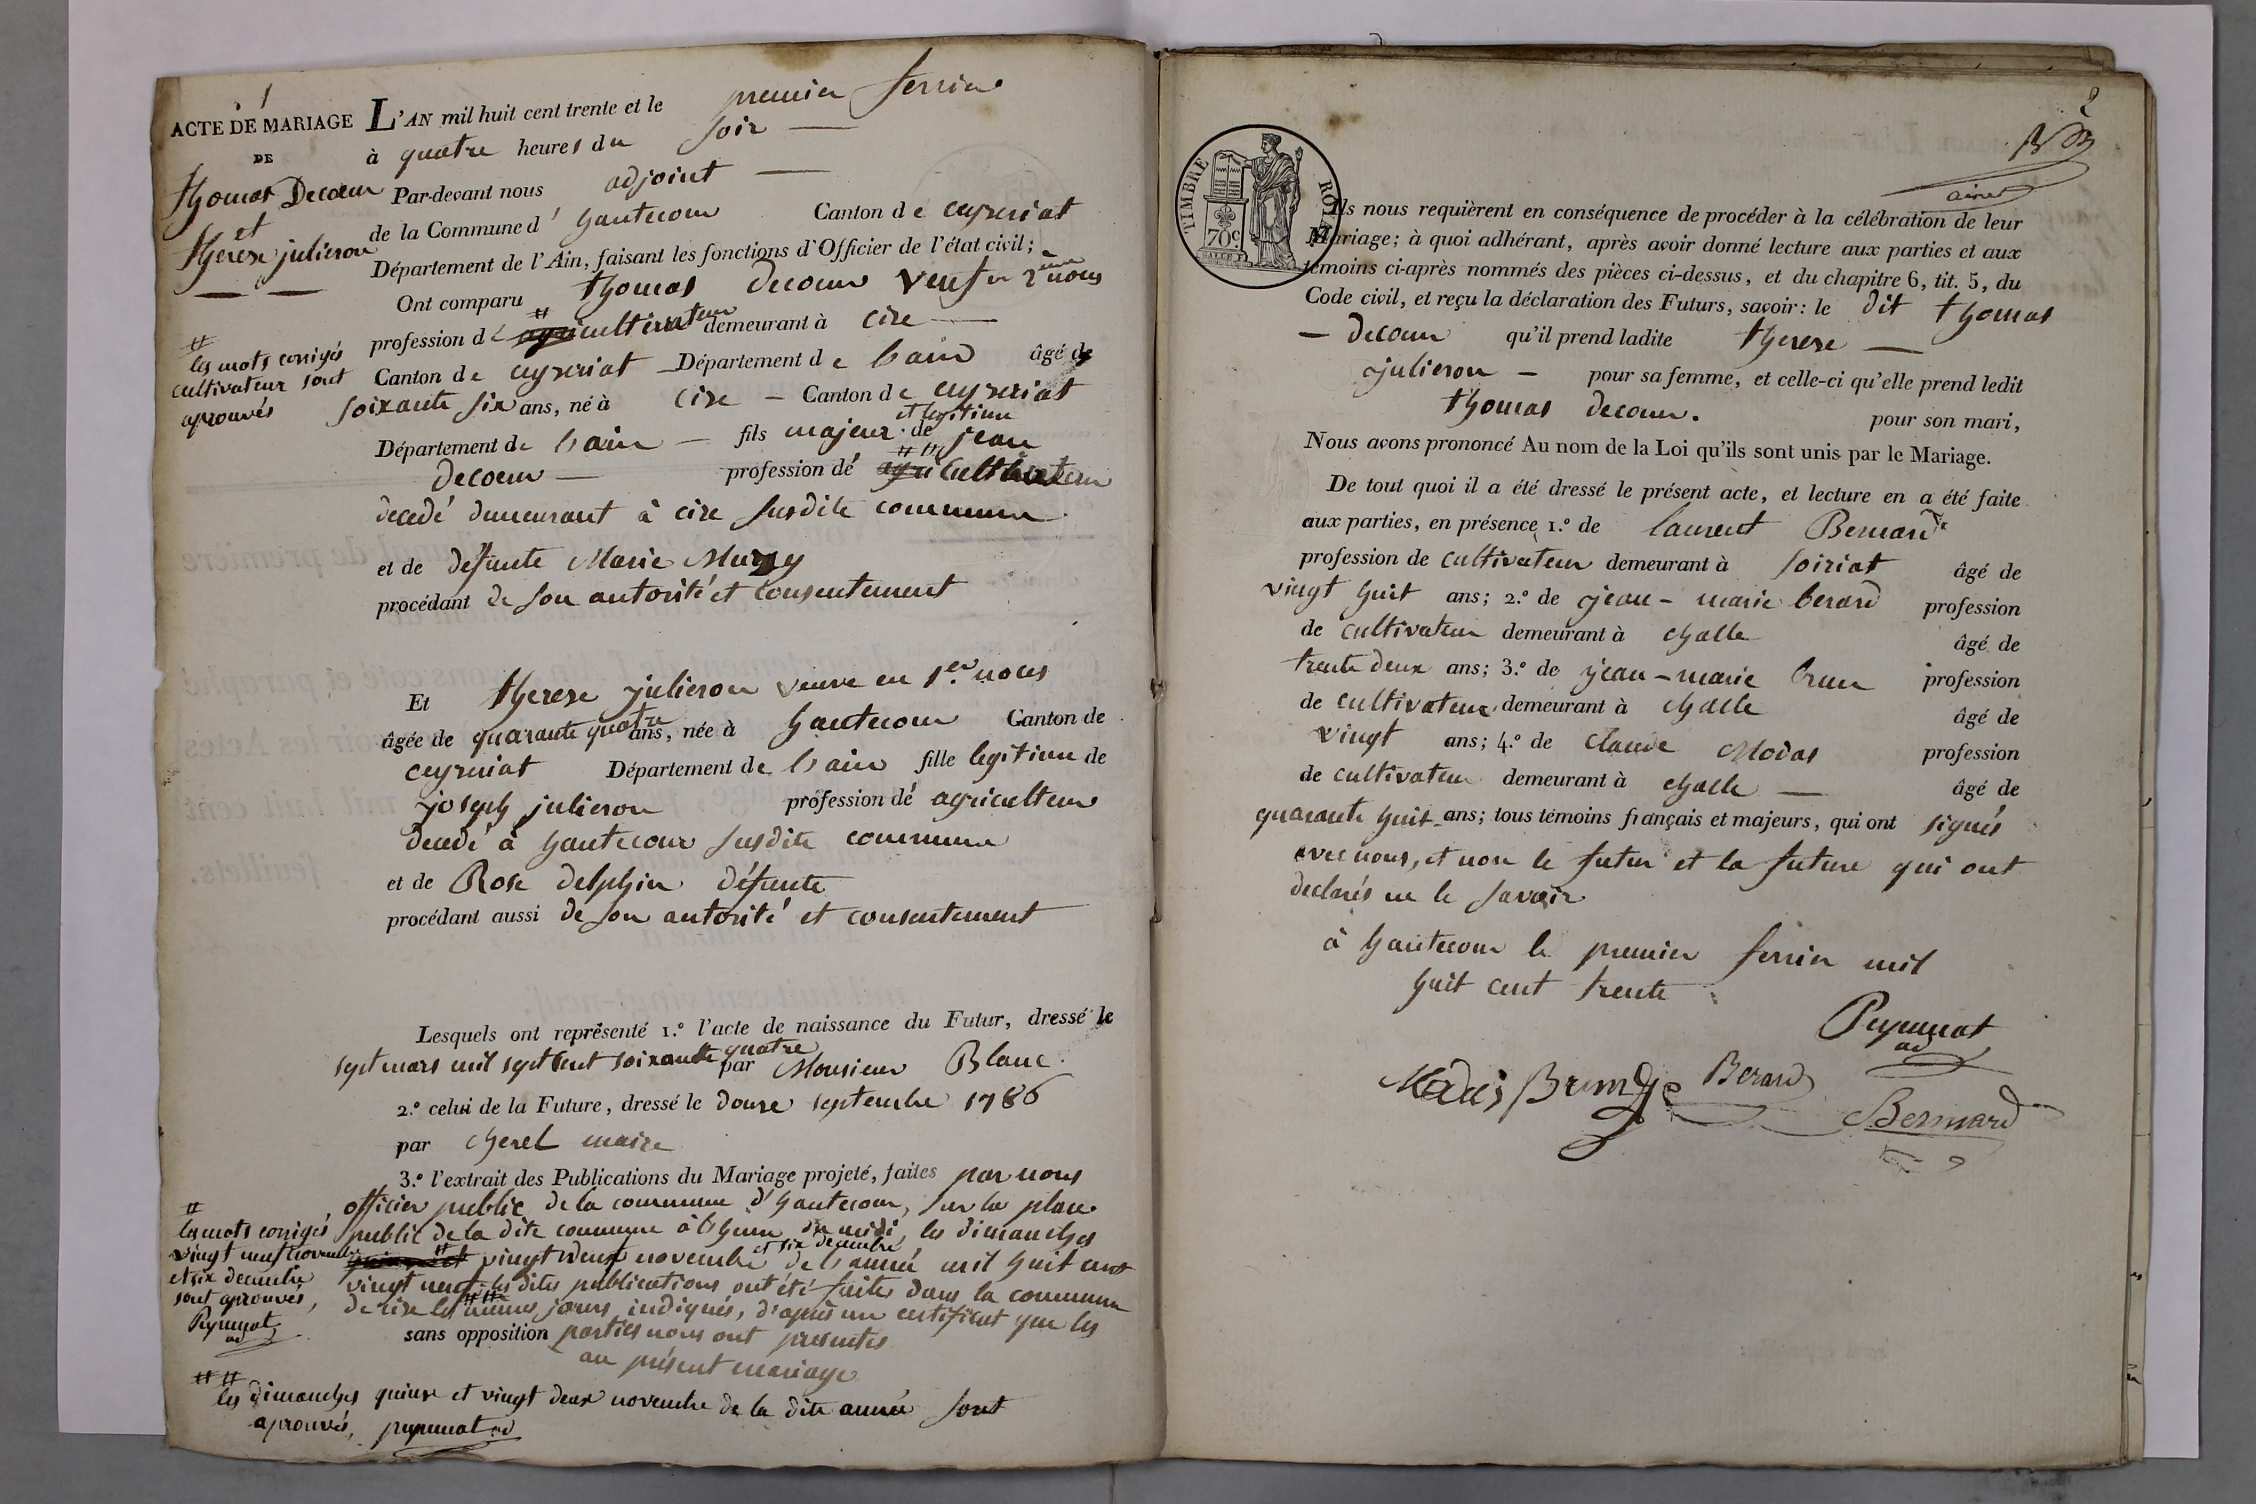 1
ACTE DE MARIAGE
DE
thomas Decoeur
et
therese julieron
L'AN mil huit cent trente et le premier ferrier
à quatre heures du soir
Par-devant nous adjoint
de la Commune d' hautecour Canton de ceyzeriat
Département de l'Ain, faisant les fonctions d'Officier de l'état civil;
Ont comparu thomas decoeur veuf en 2eme noces
profession de cultivateur demeurant à cize
Canton de ceyzeriat Département de l'ain âgé de
soixante six ans, né à cize Canton de ceyzeriat
et legitime
Département de l'ain fils majeur de jean
decoeur profession de cultivateur
decedé demeurant à cize susdite commune
et de defunte Marie
procédant de son autorité et consentement
#
les mots corrigés
cultivateur sont
aprouvés
Et therese julieron veuve en 1er noces
âgée de quarante quatre ans, née à hautecour Canton de
ceyzeriat Département de l'ain fille legitime de
joseph julieron profession de agriculteur
decedé à hautecour susdite commune
et de Rose delphin défunte
procédant aussi de son autorité et consentement
Lesquels ont représenté 1.º l'acte de naissance du Futur, dressé le
sept mars mil sept cent soixante quatre par Monsieur Blanc.
2.º celui de la Future, dressé le douze septembre 1786
par cherel maire
3.º l'extrait des Publications du Mariage projeté, faites par nous
officier public de la commune d'hautecour, sur la place
public de la dite commune à l'heure de midi, les dimanches
vingt neuf novembre et six decembre de l'année mil huit cent
vingt neuf. les dites publications ont été faites dans la commune
de cize les mêmes jours indiqués, d'après un certificat que les
sans opposition parties nous ont presentés
au présent mariage
#
les mots corrigés
vingt neuf novembre
et six decembre
sont aprouvés,
Pupunat
ad
# #
les dimanches quinze et vingt deux novembre de la dite année sont
aprouvés, pupunat ad
2
TIMBRE ROYAL
70c
Ils nous requièrent en conséquence de procéder à la célébration de leur
Mariage; à quoi adhérant, après avoir donné lecture aux parties et aux
témoins ci-après nommés des pièces ci-dessus, et du chapitre 6, tit. 5, du
Code civil, et reçu la déclaration des Futurs, savoir: le dit thomas
decoeur qu'il prend ladite therese
julieron pour sa femme, et celle-ci qu'elle prend ledit
thomas decoeur. pour son mari,
Nous avons prononcé Au nom de la Loi qu'ils sont unis par le Mariage.
De tout quoi il a été dressé le présent acte, et lecture en a été faite
aux parties, en présence 1.º de laurent Bernard
profession de cultivateur demeurant à soiriat âgé de
vingt huit ans; 2.º de jean-marie berard profession
de cultivateur demeurant à challe âgé de
trente deux ans; 3.º de jean-marie brun profession
de cultivateur demeurant à challe âgé de
vingt ans; 4.º de claude Modas profession
de cultivateur demeurant à challe âgé de
quarante huit ans; tous témoins français et majeurs, qui ont signés
avec nous, et non le futur et la future qui ont
declarés ne le savoir
à hautecour le premier ferrier mil
huit cent trente
Pupunat
ad
Berard
Bernard